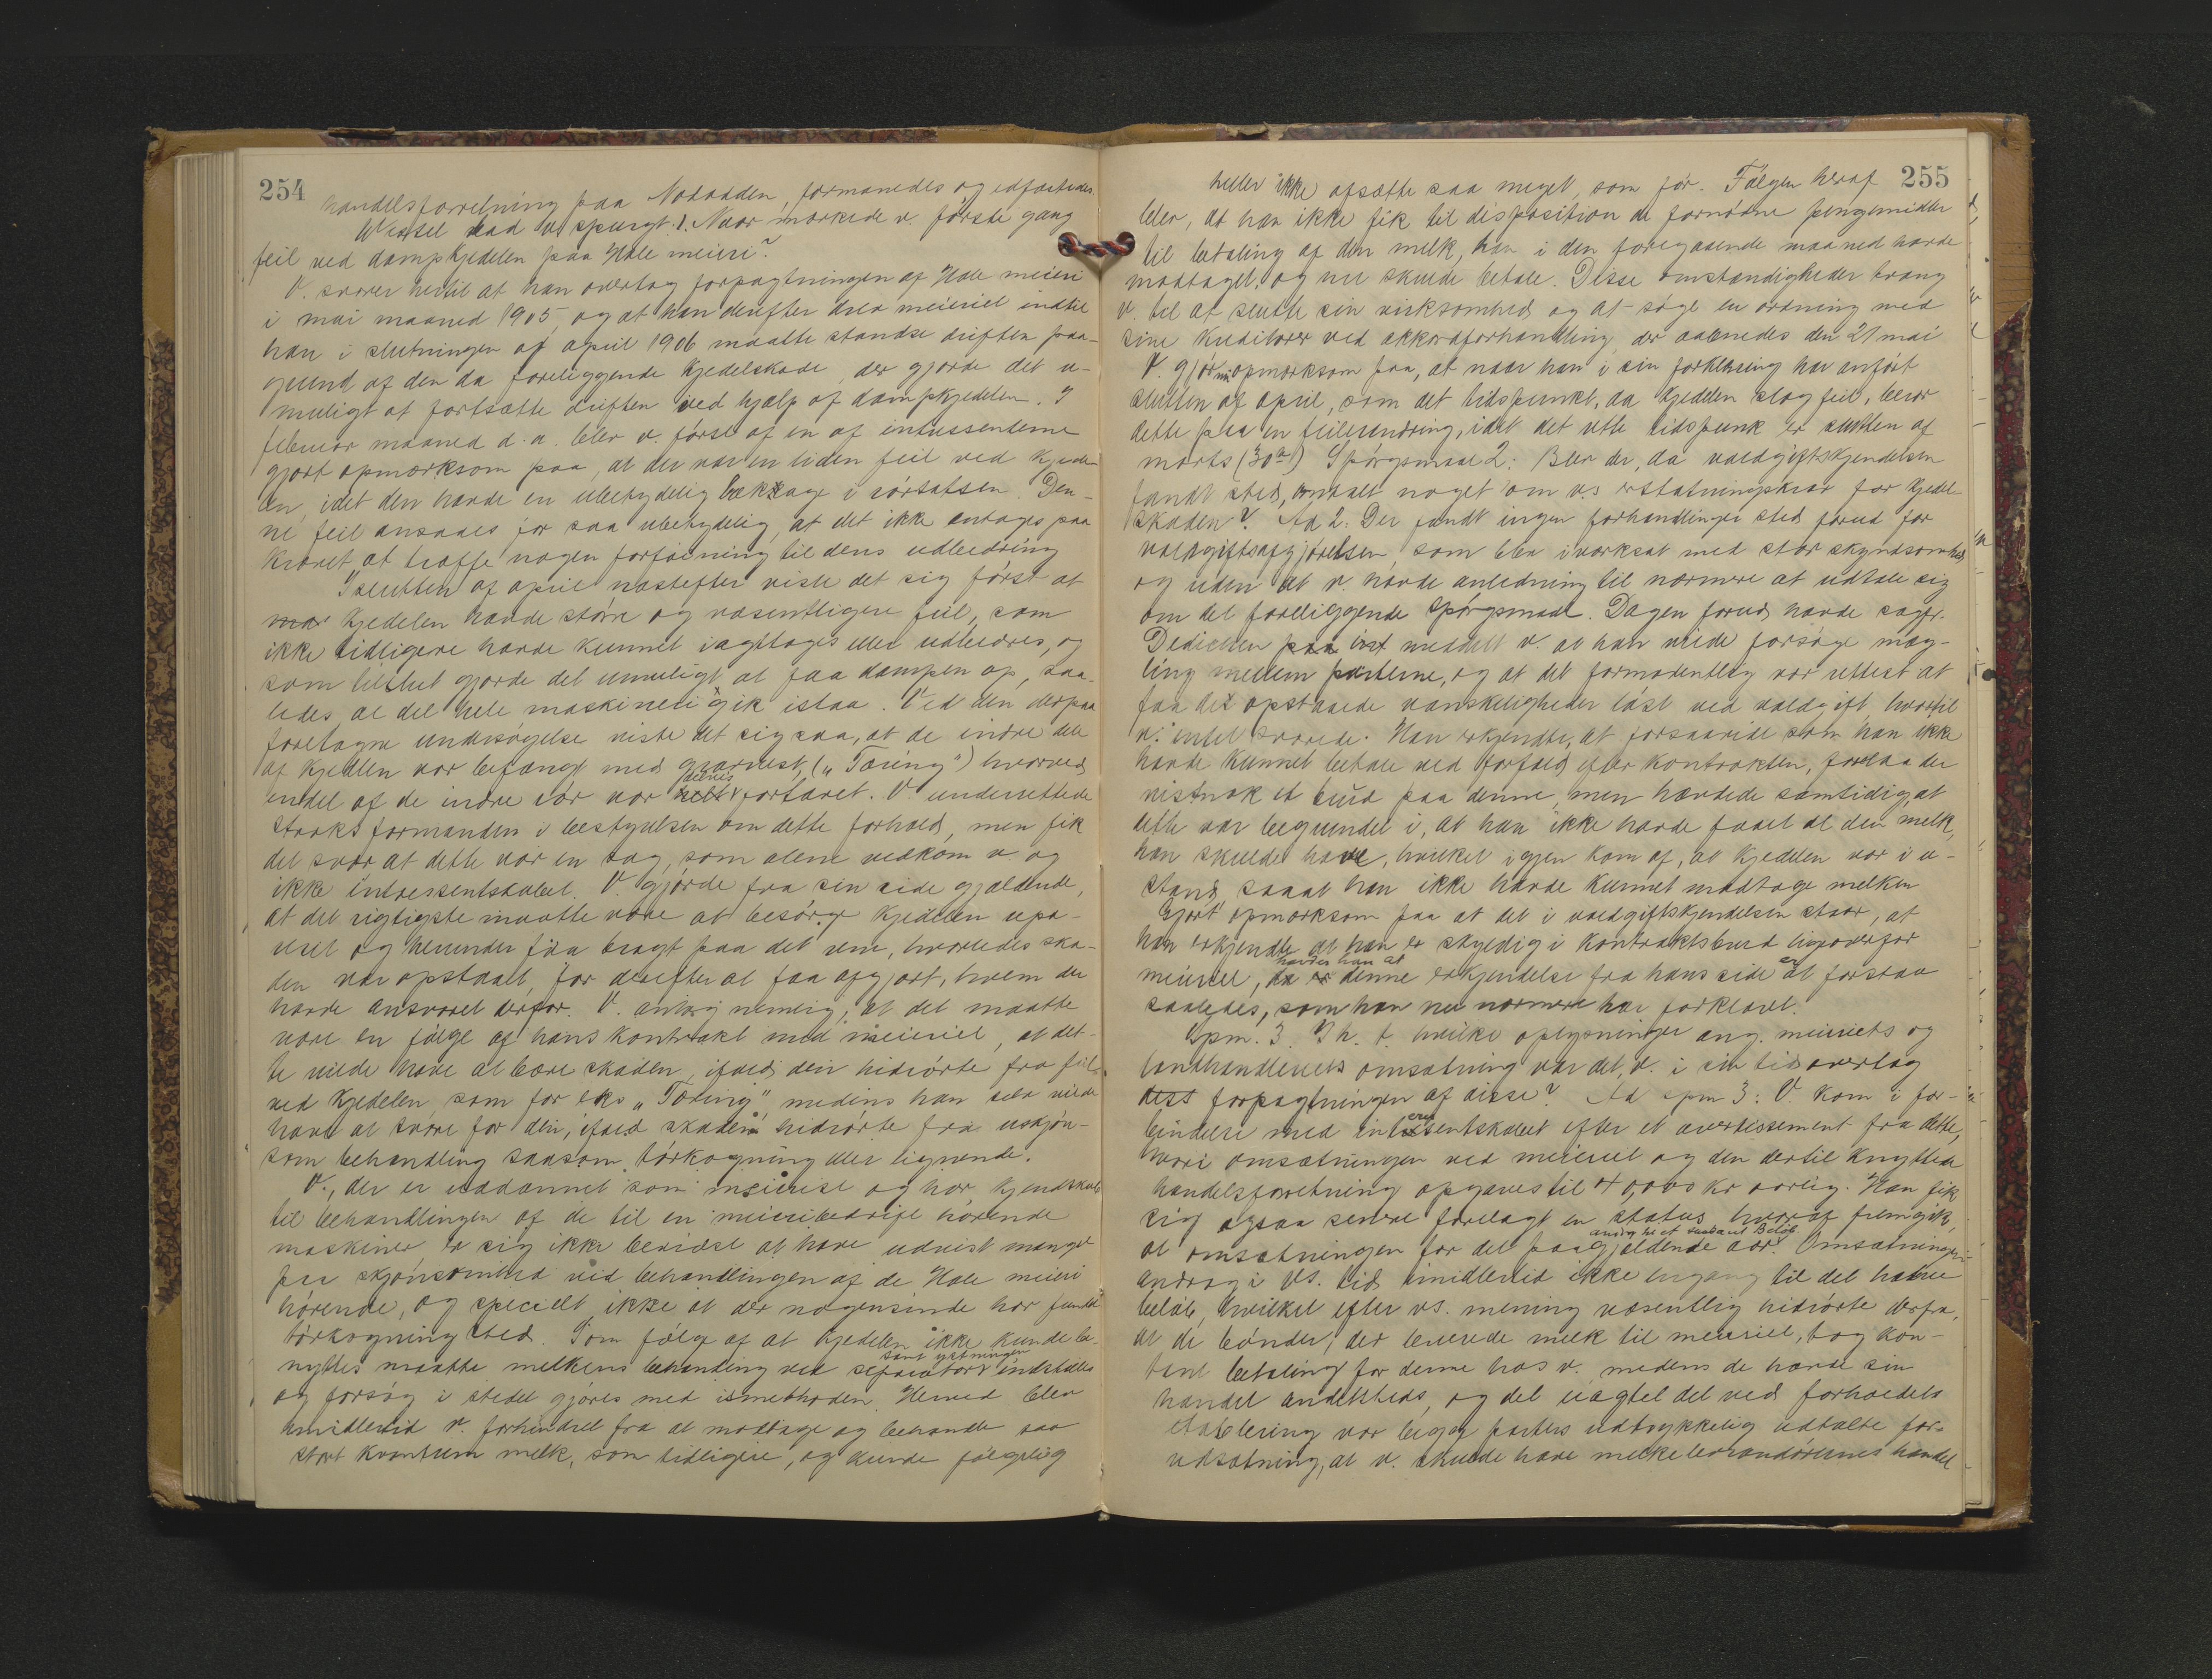 254
handelsforretning paa Notodden, formanedes og edfæstedes.
Wessel bad v. spurgt: 1. Naar mærkede v. første gang
feil ved dampkjedelen paa Hole meieri?
V. svarer hertil at han overtog forpagtningen af Hole meieri
i mai maaned 1905, og at han derefter drev meieriet indtil
han i slutningen af april 1906 maatte standse driften paa-
grund af den da foreliggende kjedelskade, der gjorde det u-
muligt at fortsætte driften ved hjælp af dampkjedelen. I
februar maaned d. a. blev v. først af en af intressenterne
gjort opmærksom paa, at der var en liden feil ved kjedel-
en, idet den havde en ubetydelig lækage i rørsatsen. Den-
ne feil ansaaes for saa ubetydelig, at det ikke antages paa
krævet at træffe nogen forføining til dens udbedring
I slutten af april næstefter viste det sig først at
kjedelen havde større og væsentligere feil, som
ikke tidligere havde kunnet iagttages eller udbedres, og
som tilslut gjorde det umuligt at faa dampen op, saa-
ledes at det hele maskineri gik istaa. Ved den derpaa
foretagne undersøgelse viste det sig saa, at de indre dele
af kjedlen var befængt med gravrust, („Tæring") hvorved
endel af de indre rør var delvis fortæret. V. underrettede
straks formanden i bestyrelsen om dette forhold, men fik
det svar at dette var en sag, som alene vedkom v. og
ikke intressentskabet. V. gjorde fra sin side gjældende,
at det rigtigste maatte være at besørge kjedelen repa-
reret og herunder faa bragt paa det rene, hvorledes ska-
den var opstaat, for derefter at faa afgjort, hvem der
havde ansvaret derfor. V. antog nemlig, at det maatte
være en følge af hans kontrakt med meieriet, at det-
te vilde have at bære skaden, ifald den hidrørte fra feil
ved kjedelen, som for eks. „Tæring", medens han selv vilde
have at svare for den, ifald skaden hidrørte fra uskjøn-
som behandling saasom tørkogning eller lignende.
V., der er uddannet som meierist og har kjendskab
til behandlingen af de til en meieribedrift hørende
maskiner er sig ikke bevidst at have udvist mangel
paa skjønsomhed ved behandlingen af de Hole meieri
hørende, og specielt ikke at der nogensinde har fundet
tørkogning sted. Som følge af at kjedelen ikke kunde be-
nyttes maatte melkens behandling ved separator samt ystningen indstilles
og forsøg i stedet gjøres med ismethoden. Herved blev
imidlertid v. forhindret fra at modtage og behandle saa
stort kvantum melk, som tidligere, og kunde følgelig
255
heller ikke afsætte saa meget, som før. Følgen heraf
blev, at han ikke fik til disposition de fornødne pengemidler
til betaling af den melk, han i den foregaaende maaned havde
modtaget, og nu skulde betale. Disse omstændigheder tvang
v. til at slutte sin virksomhed og at søge en ordning med
sine kreditorer ved akkordforhandling, der aabnedes den 21 mai
V. gjør nu opmærksom paa, at naar han i sin forklaring har anført
slutten af april, som det tidspunkt, da kjedelen slog feil, beror
dette paa en feilerindring, idet det rette tidspunk er slutten af
marts (30te) Spørgsmaal 2: Blev der, da voldgiftskjendelsen
fandt sted, omtalt noget om vs erstatningskrav for kjedel-
skaden? Ad 2: Der fandt ingen forhandlinger sted forud for
voldgiftsafgjørelsen, som blev iverksat med stor skyndsomhed
og uden at v. havde anledning til nærmere at udtale sig
om det foreliggende spørgsmaal. Dagen forud havde sagf.
Dedichen meddelt v. at han vilde forsøge mæg-
ling mellem parterne, og at det formodentlig var rettest at
faa de opstaaede vanskeligheder løst ved voldgift, hvortil
v. intet svarede. Han erkjendte, at forsaavidt som han ikke
havde kunnet betale ved forfald efter kontrakten, forelaa der
vistnok et brud paa denne, men hævdede samtidig, at
dette var begrundet i, at han ikke havde faaet al den melk,
han skulde have, hvilket igjen kom af, at kjedelen var i u-
stand, saaat han ikke havde kunnet modtage melken
Gjort opmærksom paa at det i voldgiftskjendelsen staar, at
han erkjendte at han er skyldig i kontraktsbrud ligeoverfor
meieriet, hævder han at denne erkjendelse fra hans side er at forstaa
saaledes, som han nu nærmere har forklaret.
Spm. 3. I h. t. hvilke oplysninger ang. meieriets og
landhandleriets omsætning var det, v. i sin tid overtog
forpagtningen af disse? Ad spm 3: V. kom i for-
bindelse med interessentskabet efter et avertissement fra dette,
hvori omsætningen ved meieriet og den dertil knyttede
handelsforretning opgaves til 40,000 kr aarlig. Han fik
sig ogsaa senere forelagt en status hvoraf fremgik,
at omsætningen for det paagjældende aar androg til et saadant Beløb. Omsætningen
androg i vs. tid imidlertid ikke engang til det halve
beløb, hvilket efter vs. mening væsentlig hidrørte derfra,
at de bønder, der leverede melk til meieriet, tog kon-
tant betaling for denne hos v. medens de havde sin
handel andetsteds, og det uagtet det ved forholdets
etablering var begge parters udtrykkelig udtalte for-
udsætning, at v. skulde have melkeleverandørernes handel